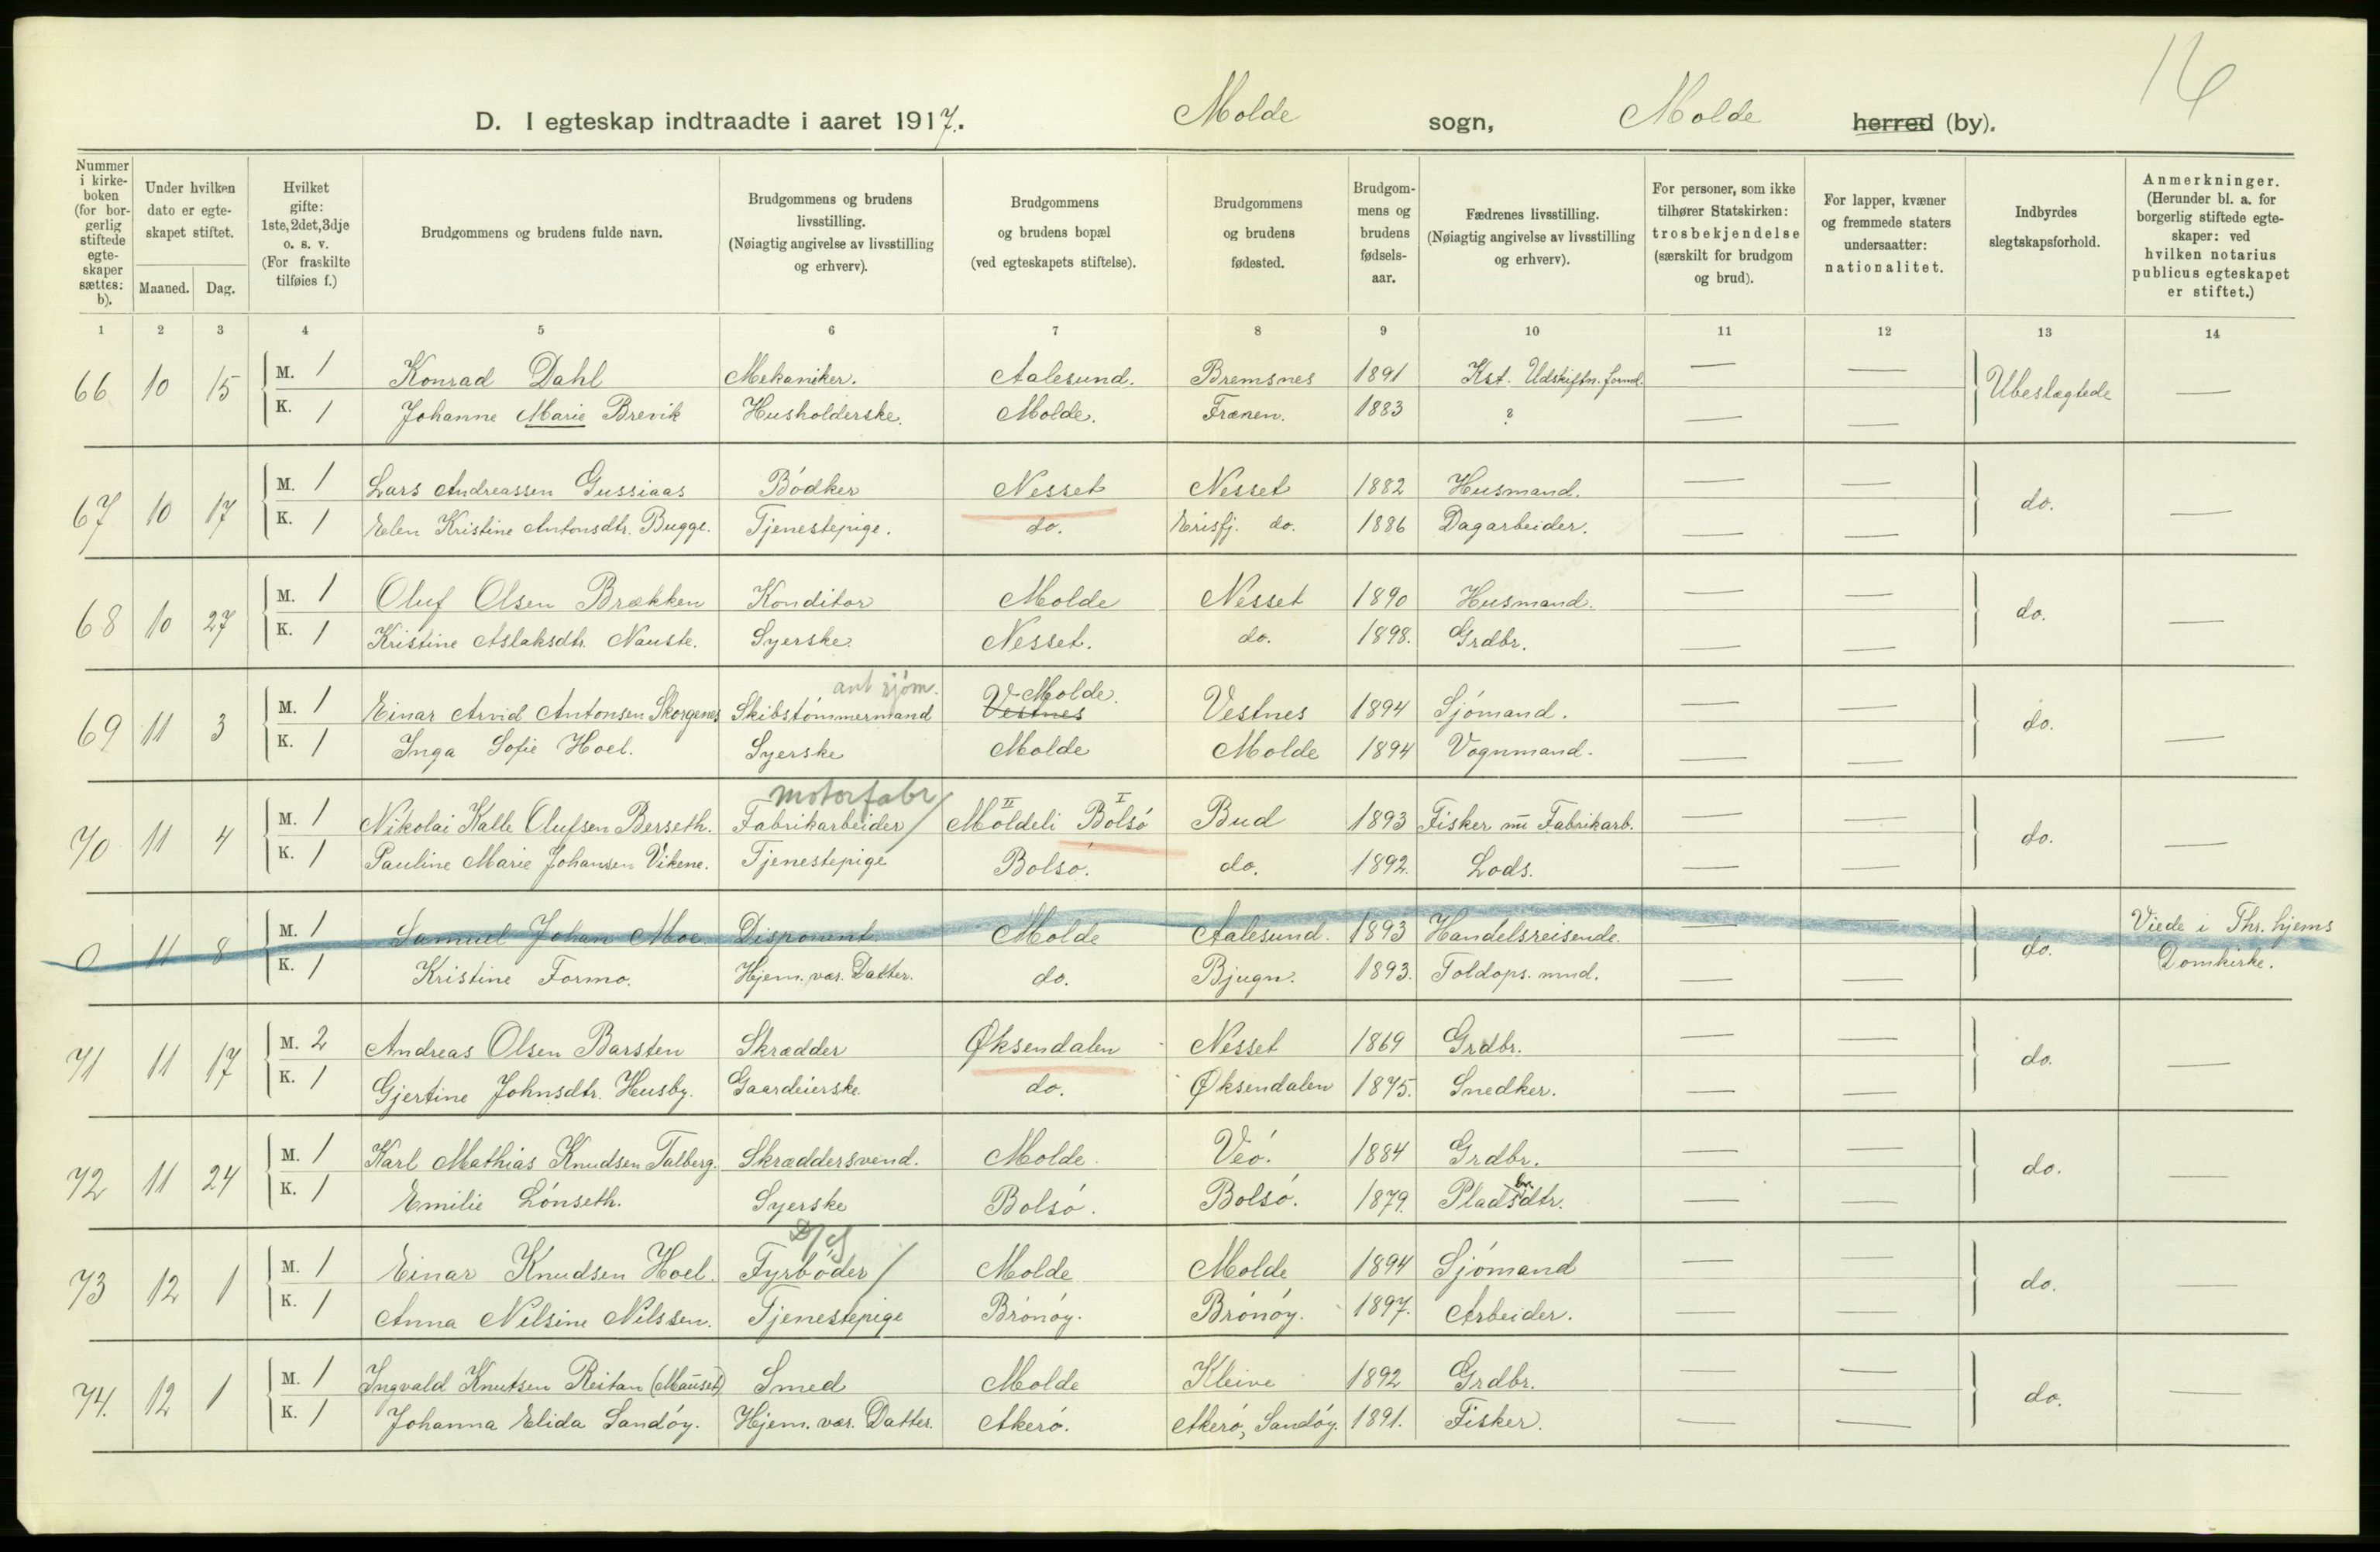 16
D. I egteskap indtraadte i aaret 1917. Molde sogn, Molde herred (by).
Nummer i kirkeboken (for borgerlig stiftede egteskaper sættes: b). | Under hvilken dato er egteskapet stiftet. Maaned. Dag. | Hvilket gifte: 1ste, 2det, 3dje o. s. v. (For fraskilte tilføies f.) | Brudgommens og brudens fulde navn. | Brudgommens og brudens livsstilling. (Nøiagtig angivelse av livsstilling og erhverv). | Brudgommens og brudens bopæl (ved egteskapets stiftelse). | Brudgommens og brudens fødested. | Brudgommens og brudens fødselsaar. | Fædrenes livsstilling. (Nøiagtig angivelse av livsstilling og erhverv). | For personer, som ikke tilhører Statskirken: trosbekjendelse (særskilt for brudgom og brud). | For lapper, kvæner og fremmede staters undersaatter: nationalitet. | Indbyrdes slegtskapsforhold. | Anmerkninger. (Herunder bl. a. for borgerlig stiftede egteskaper: ved hvilken notarius publicus egteskapet er stiftet.)
1 2 3 4 5 6 7 8 9 10 11 12 13 14
66 10 15 M. 1 Konrad Dahl Mekaniker. Aalesund. Bremsnes 1891 Kst. Udskiftn. formd. — — Ubeslægtede —
K. 1 Johanne Marie Brevik Husholderske. Molde. Frænen. 1883 ? — —
67 10 17 M. 1 Lars Andreassen Gussiaas Bödker Nesset Nesset 1882 Husmand. — — do. —
K. 1 Elen Kristine Antonsdtr. Bugge. Tjenestepige. do. Erisfj. do. 1886 Dagarbeider. — —
68 10 27 M. 1 Oluf Olsen Brækken Konditor Molde Nesset 1890 Husmand. — — do. —
K. 1 Kristine Aslaksdtr. Nauste. Syerske. Nesset. do. 1898. Grdbr. — —
ant sjöm. V Molde.
69 11 3 M. 1 Einar Arvid Antonsen Skorgenes Skibstömmermand Vestnes Vestnes 1894 Sjömand. — — do. —
K. 1 Inga Sofie Hoel. Syerske Molde Molde 1894 Vognmand. — —
motorfabr II I
70 11 4 M. 1 Nikolai Kalle Olufsen Berseth. Fabrikarbeider / Moldeli Bolsö Bud 1893 Fisker nu Fabrikarb. — — do. —
K. 1 Pauline Marie Johansen Vikene. Tjenestepige Bolsö. do. 1892. Lods. — —
0 11 8 M. 1 Samuel Johan Moe. Disponent. Molde Aalesund. 1893 Handelsreisende. — — do. Viede i Thr.hjems
K. 1 Kristine Formo. Hjem. vær. Datter. do. Bjugn. 1893. Toldops. mnd. — — Domkirke.
71 11 17 M. 2 Andreas Olsen Barsten Skrædder Øksendalen Nesset 1869 Grdbr. — — do. —
K. 1 Gjertine Johnsdtr. Husby. Gaardeierske. do. Øksendalen 1875. Snedker. — —
72 11 24 M. 1 Karl Mathias Knudsen Talberg. Skræddersvend. Molde. Veö. 1884 Grdbr. — — do. —
br.
K. 1 Emilie Lönseth. Syerske Bolsö. Bolsö. 1879. Pladsdtr. — —
D/S
73 12 1 M. 1 Einar Knudsen Hoel. Fyrböder / Molde Molde 1894 Sjömand — — do. —
K. 1 Anna Nilsine Nilssen. Tjenestepige Brönöy. Brönöy. 1897. Arbeider. — —
74. 12 1 M. 1 Ingvald Knutsen Reitan (Mauset) Smed Molde Kleive 1892 Grdbr. — — do. —
K. 1 Johanna Elida Sandöy. Hjem. vær. Datter. Akerö. Akerö, Sandöy. 1891. Fisker. — —